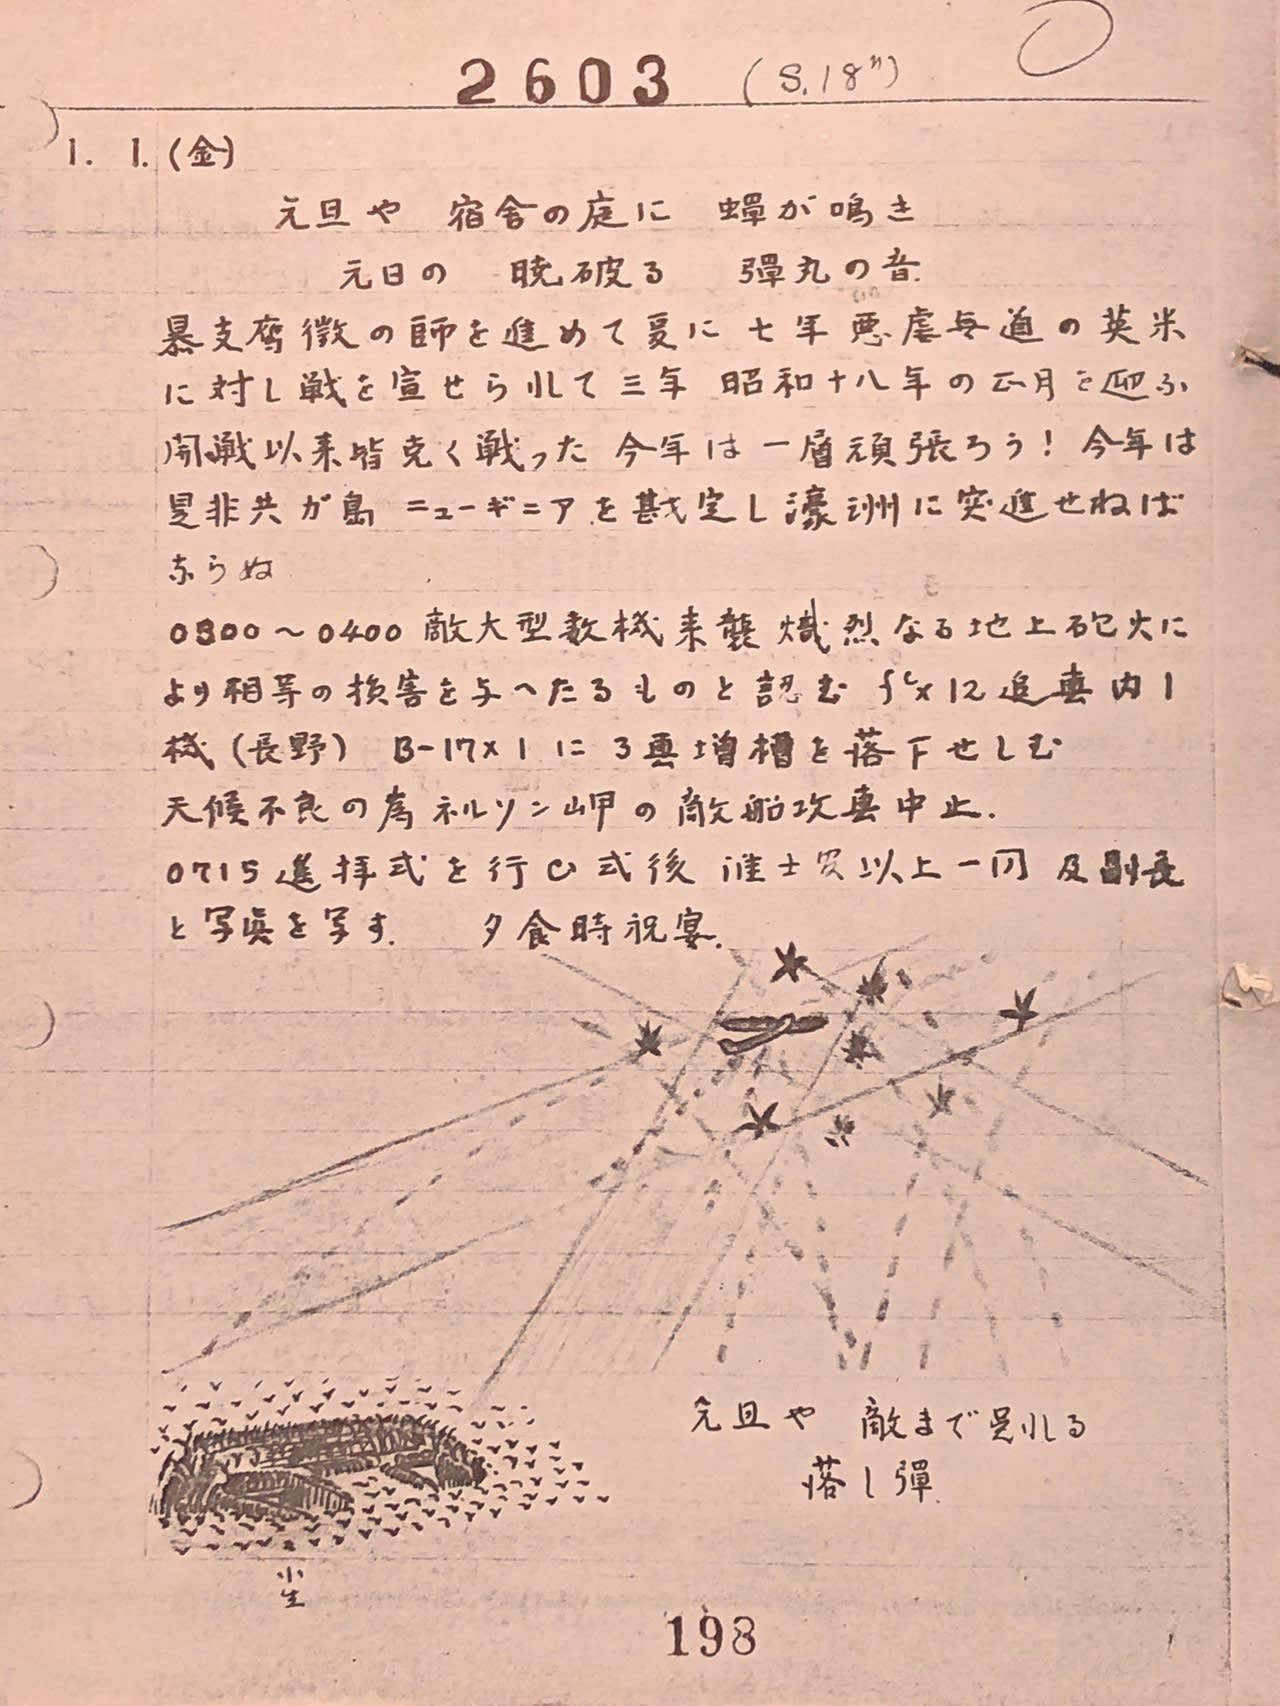 2603 (S.18")
1. 1. (金)
元旦や 宿舎の庭に 蟬が鳴き
元日の 暁破る 彈丸の音
暴支膺徴の師を進めて夏に七年 悪虐無道の英米
に対し戦を宣せられて三年 昭和十八年の正月を迎ふ
開戦以来皆克く戦った 今年は一層頑張ろう! 今年は
是非共ガ島 ニューギニアを戡定し濠洲に突進せねば
ならぬ
0300〜0400 敵大型数機来襲 熾烈なる地上砲火に
より相等の損害を与へたるものと認む fc×12 追撃内1
機 (長野) B-17×1 に3撃増槽を落下せしむ
天候不良の為 ネルソン岬の敵船攻撃中止.
0715 遙拝式を行ひ式後 准士官以上一同 及副長
と写真を写す. 夕食時祝宴.
元旦や 敵まで呉れる
落し彈
小生
198